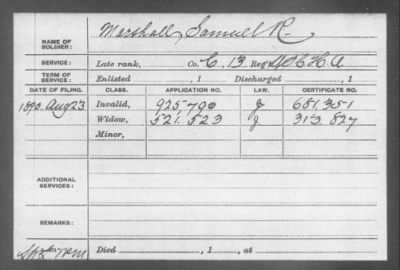 NAME OF SOLDIER: Marshall, Samuel R.
SERVICE: Late rank, Co. C, 13 Reg't
TERM OF SERVICE: Enlisted , 1 Discharged , 1
DATE OF FILING. CLASS. APPLICATION NO. LAW. CERTIFICATE NO.
1890. Aug 23 Invalid, 925-790 J 681.351
Widow, 521.523 J 313.827
Minor,
ADDITIONAL SERVICES:
REMARKS:
Died , 1 , at